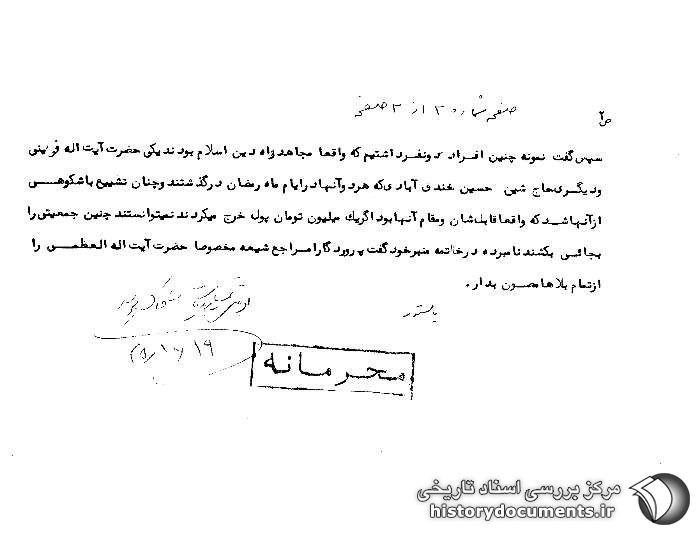 ص۲
صفحه شماره ۲ از ۲ صفحه
سپس گفت نمونه چنین افراد دونفر داشتیم که واقعا مجاهد راه دین اسلام بودند یکی حضرت آیت اله قزینی
ودیگری حاج شین حسین خندق آبادی که هردو آنها در ایام ماه رمضان درگذشتند وچنان تشییع باشکوهی
از آنها شد که واقعا قابل شان ومقام آنها بود اگریک میلیون تومان پول خرج میکردند نمیتوانستند چنین جمعیتی را
بجائی بکشند نامبرده درخاتمه منبر خود گفت پروردگارا مراجع شیعه مخصوصا حضرت آیت اله العظمی را
ازتمام بلاها مصون بدار.
محرمانه
مرکز بررسی اسناد تاریخی
historydocuments.ir